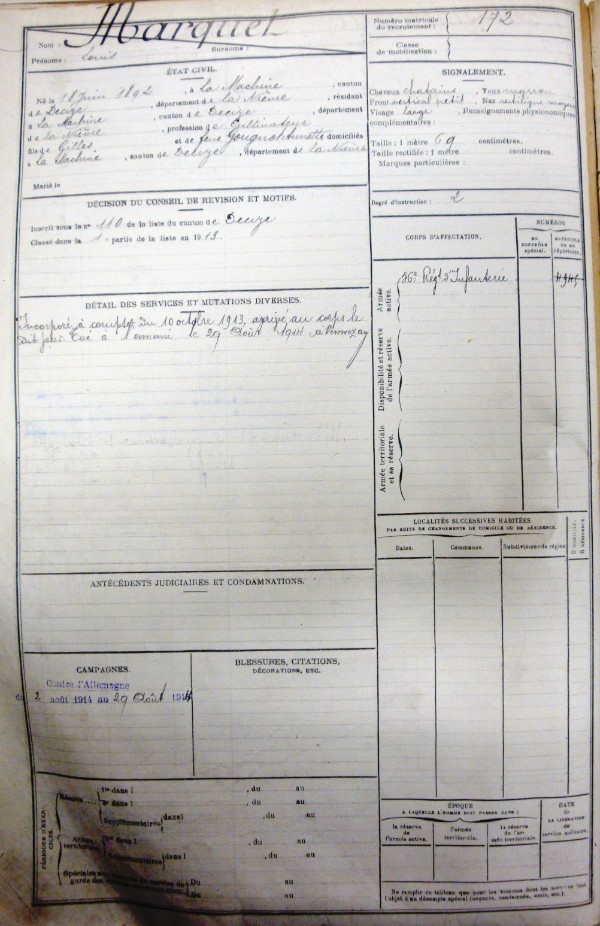 Nom : Marquet
Prénoms : Louis Surnoms :
Numéro matricule du recrutement : 172
Classe de mobilisation :
ÉTAT CIVIL.
Né le 18 Juin 1892, à La Machine, canton
de Decize, département de la Nièvre, résidant
à La Machine, canton de Decize, département
de la Nièvre, profession de Cultivateur
fils de Gilles et de feue Annette domiciliés
à La Machine, canton de Decize, département de la Nièvre
Marié le
SIGNALEMENT.
Cheveux chatains Yeux marron
Front vertical petit, Nez rectiligne moyen
Visage large, Renseignements physionomiques
complémentaires :
Taille : 1 mètre 69 centimètres.
Taille rectifiée : 1 mètre centimètres.
Marques particulières :
Degré d'instruction : 2
DÉCISION DU CONSEIL DE REVISION ET MOTIFS.
Inscrit sous le n° 110 de la liste du canton de Decize
Classé dans la 1e partie de la liste en 1913.
CORPS D'AFFECTATION.
NUMÉROS
AU CONTRÔLE SPÉCIAL.
MATRICULE OU AU RÉPERTOIRE.
Armée active.
36e Régt d'Infanterie
Disponibilité et réserve de l'armée active.
Armée territoriale et sa réserve.
DÉTAIL DES SERVICES ET MUTATIONS DIVERSES.
Incorporé à compter du 10 octobre 1913, arrivé au corps le
dit jour. Tué à l'ennemi le 29 Août 1914 à
LOCALITÉS SUCCESSIVES HABITÉES
PAR SUITE DE CHANGEMENTS DE DOMICILE OU DE RÉSIDENCE.
Dates. Communes. Subdivisions de région D. DOMICILE. R. RÉSIDENCE.
ANTÉCÉDENTS JUDICIAIRES ET CONDAMNATIONS.
CAMPAGNES.
Contre l'Allemagne
du 2 août 1914 au 29 Août 1914
BLESSURES, CITATIONS,
DÉCORATIONS, ETC.
PÉRIODES D'EXERCICES.
Réserve 1re dans l , du au
2e dans l , du au
Supplémentaires dans l , du au
Armée territoriale 1re dans l , du au
Supplémentaires dans l , du au
Du au
Du au
ÉPOQUE
À LAQUELLE L'HOMME DOIT PASSER DANS :
la réserve de l'armée active.
l'armée territoriale.
la réserve de l'armée territoriale.
DATE de LA LIBÉRATION du service militaire.
Ne remplir ce tableau que pour les hommes dont les services font
l'objet d'un décompte spécial (engagés, condamnés, omis, etc.)